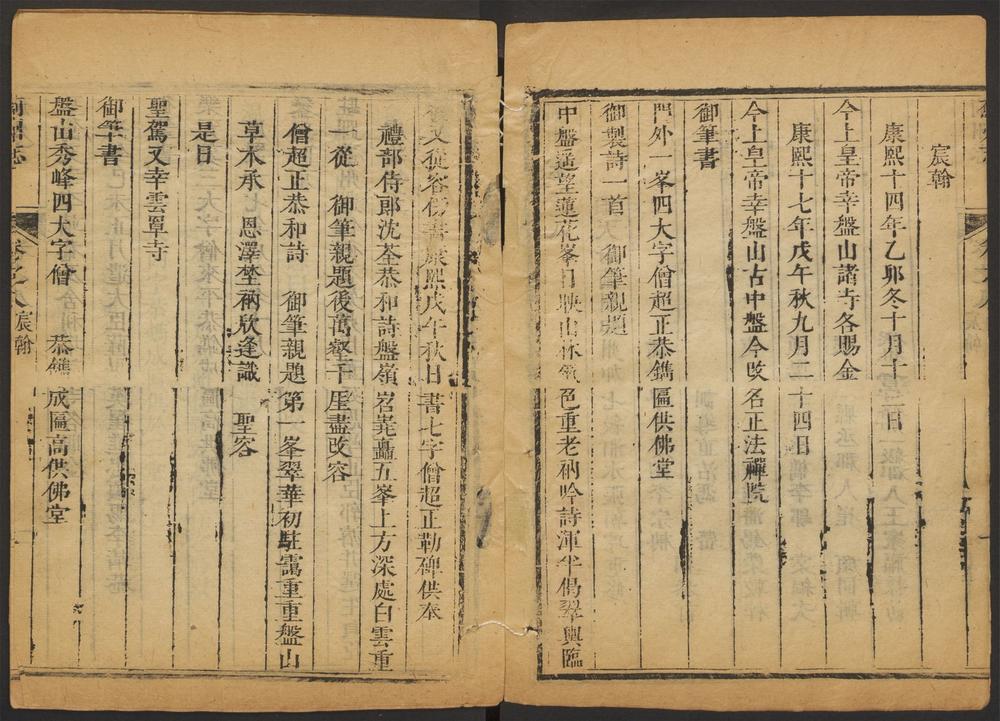 宸翰
康熙十四年乙卯冬十月十二日
今上皇帝幸盤山諸寺各賜金
康熙十七年戊午秋九月二十四日
今上皇帝幸盤山古中盤今改名正法禪院
御筆書
門外一峯四大字僧超正恭鐫匾供佛堂
御製詩一首 御筆親題
中盤遥望蓮花峯日映山林氣色重老衲吟詩渾半偈翠輿臨
又從容 書康熙戊午秋日書七字僧超正勒碑供奉
禮部侍郎沈荃恭和詩盤嶺岧嶤矗五峯上方深處白雲重
一從 御筆親題後萬壑千厓盡改容
僧超正恭和詩 御筆親題第一峯翠華初駐靄重重盤山
草木承 恩澤埜衲欣逢識 聖容
是日
聖駕又幸雲罩寺
御筆書
盤山秀峰四大字僧 恭鐫成匾高供佛堂
盤山志 卷之八 宸翰